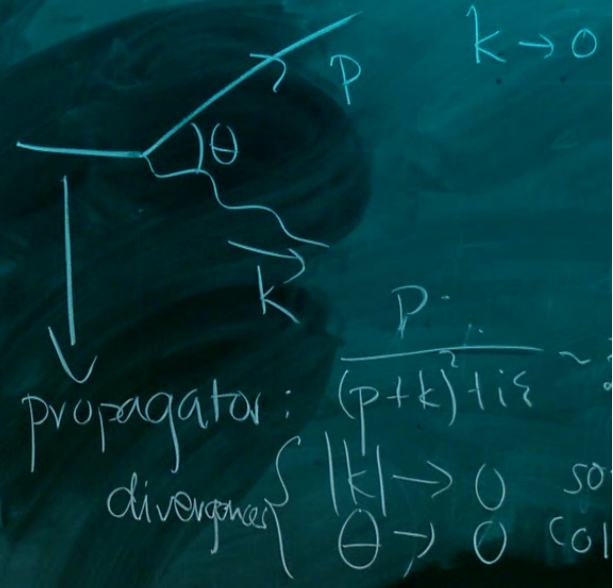 k → 0
p
θ
k
p·
propagator: (p+k)²+iε ~
divergences { |k| → 0 so
θ → 0 col